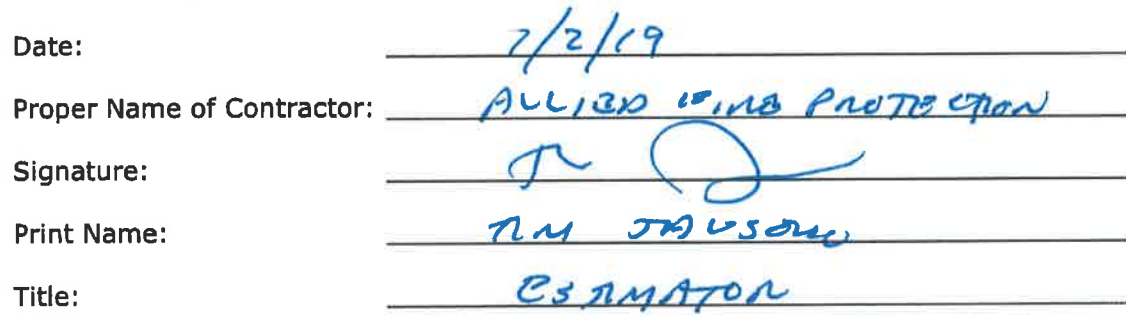 Date: 7/2/19
Proper Name of Contractor: ALLIED FIRE PROTECTION
Signature:
Print Name: TIM
Title: ESTIMATOR